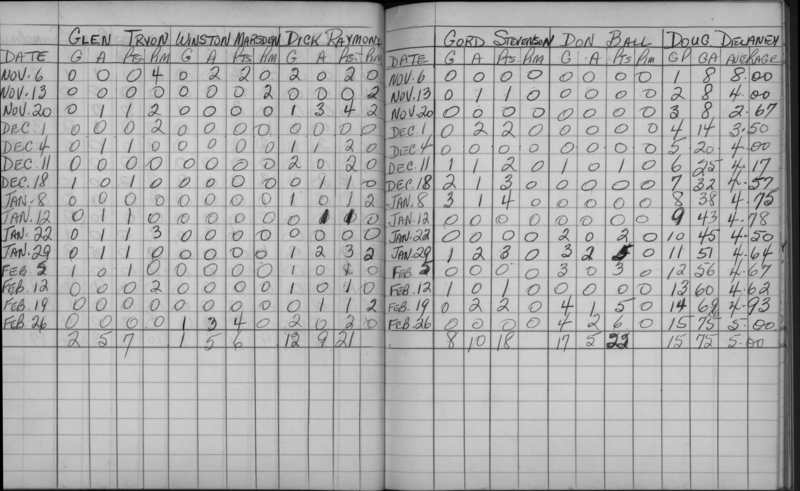 GLEN TRYON WINSTON MARSDEN DICK RAYMOND
DATE G A Pts. Pim G A Pts Pim G A Pts. Pim
NOV. 6 0 0 0 4 0 2 2 0 2 0 2 0
NOV. 13 0 0 0 0 0 0 0 2 0 0 0 2
NOV. 20 0 1 1 2 0 0 0 0 1 3 4 2
DEC. 1 0 0 0 2 0 0 0 0 0 0 0 0
DEC. 4 0 1 1 0 0 0 0 0 1 1 2 0
DEC 11 0 0 0 0 0 0 0 0 2 0 2 0
DEC. 18 1 0 1 0 0 0 0 0 0 1 1 0
JAN. 8 0 0 0 0 0 0 0 0 1 0 1 2
JAN. 12 0 1 1 0 0 0 0 0 0 1 1 0
JAN. 22 0 1 1 3 0 0 0 0 0 0 0 0
JAN. 29 0 1 1 0 0 0 0 0 1 2 3 2
FEB. 5 1 0 1 0 0 0 0 0 1 0 1 0
FEB. 12 0 0 0 2 0 0 0 0 1 0 1 0
FEB. 19 0 0 0 0 0 0 0 0 0 1 1 2
FEB. 26 0 0 0 0 1 3 4 0 2 0 2 0
2 5 7 1 5 6 12 9 21
GORD STEVENSON DON BALL DOUG DELANEY
DATE G A Pts. Pim G A Pts Pim GP GA AVERAGE
NOV. 6 0 0 0 0 0 0 0 0 1 8 8.00
NOV. 13 0 1 1 0 0 0 0 0 2 8 4.00
NOV 20 0 0 0 0 0 0 0 0 3 8 2.67
DEC. 1 0 2 2 0 0 0 0 0 4 14 3.50
DEC. 4 0 0 0 0 0 0 0 0 5 20 4.00
DEC. 11 1 1 2 0 1 0 1 0 6 25 4.17
DEC. 18 2 1 3 0 0 0 0 0 7 32 4.57
JAN. 8 3 1 4 0 0 0 0 0 8 38 4.75
JAN. 12 0 0 0 0 0 0 0 0 9 43 4.78
JAN. 22 0 0 0 0 2 0 2 0 10 45 4.50
JAN. 29 1 2 3 0 3 2 5 0 11 51 4.64
FEB. 5 0 0 0 0 3 0 3 0 12 56 4.67
FEB. 12 1 0 1 0 0 0 0 0 13 60 4.62
FEB. 19 0 2 2 0 4 1 5 0 14 69 4.93
FEB. 26 0 0 0 0 4 2 6 0 15 75 5.00
8 10 18 17 5 22 15 75 5.00